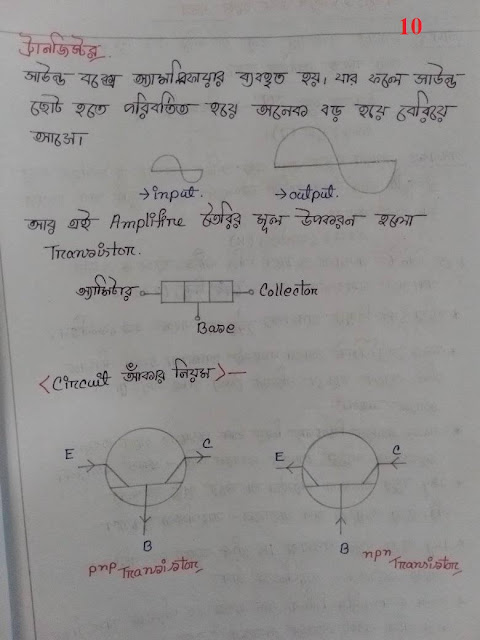 10
ট্রানজিস্টর
সাউন্ড বক্সে অ্যামপ্লিফায়ার ব্যবহৃত হয়। যার ফলে সাউন্ড
ছোট হতে পরিবর্তিত হয়ে অনেক বড় হয়ে বেরিয়ে
আসে।
→ input. → output.
আর এই Amplifire তৈরির মূল উপকরন হলো
Transistor.
অ্যামিটার Collector
Base
<Circuit আঁকার নিয়ম>—
E C E C
B B
pnp Transistor npn Transistor